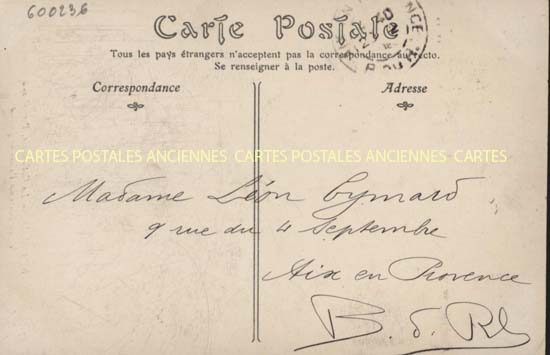 600236
Carte Postale
Tous les pays étrangers n'acceptent pas la correspondance au recto.
Se renseigner à la poste.
Correspondance
Adresse
CARTES POSTALES ANCIENNES CARTES POSTALES ANCIENNES CARTES
Madame Léon Eymard
9 rue du 4 Septembre
Aix en Provence
B. d. Rh